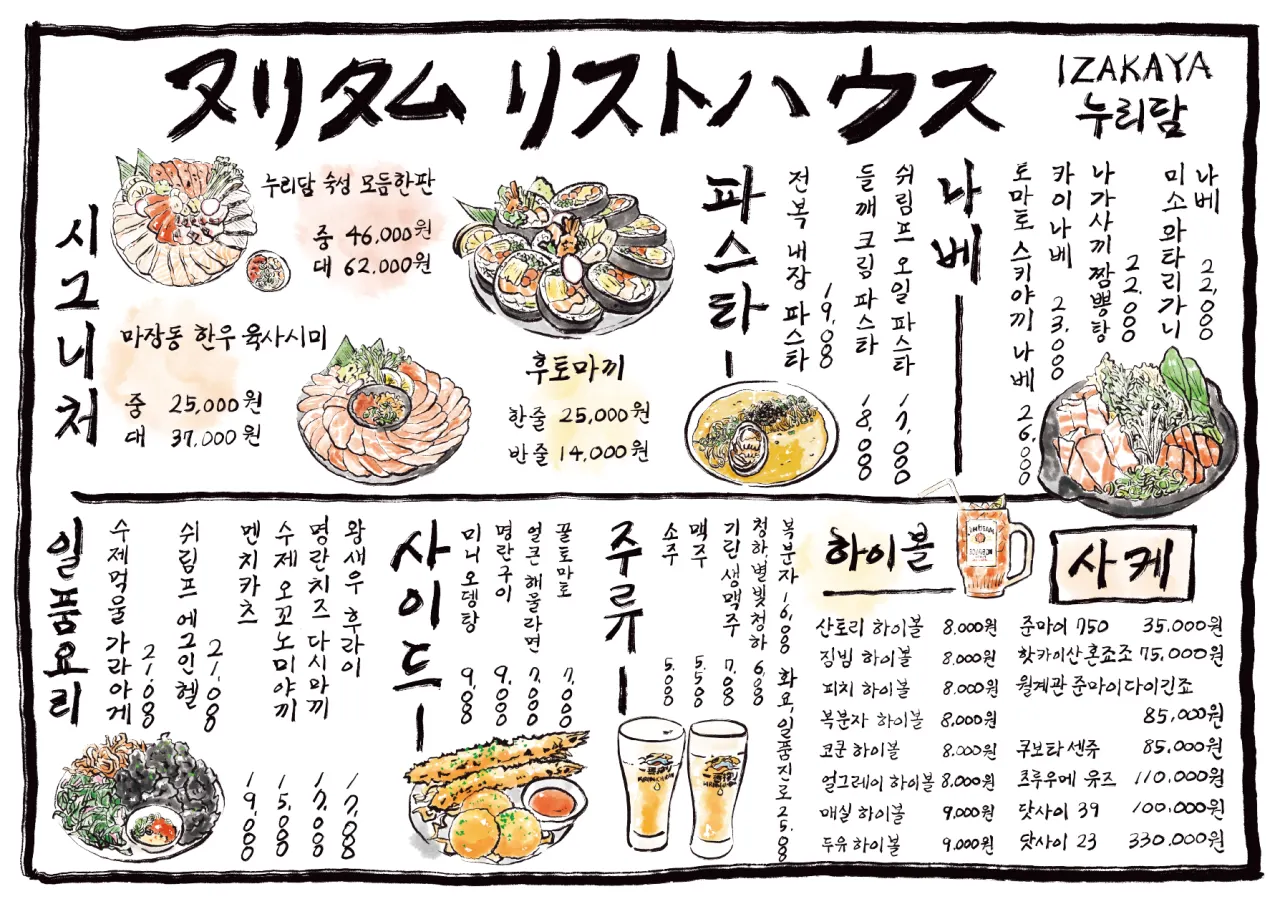 ヌリタム リストハウス
IZAKAYA
누리담
시그니처
누리담 숙성 모듬한판
중 46,000원
대 62,000원
마장동 한우 육사시미
중 25,000원
대 37,000원
후토마끼
한줄 25,000원
반줄 14,000원
파스타
전복 내장 파스타 19,000
들깨 크림 파스타 18,000
쉬림프 오일 파스타 17,000
나베
토마토 스키야끼 나베 26,000
카이나베 23,000
나가사끼 짬뽕탕 22,000
미소 와타리가니
나베 22,000
일품요리
수제먹물 가라아게 21,000
쉬림프 에그인헬 21,000
멘치카츠 19,000
수제 오꼬노미야끼 15,000
명란치즈 다시마끼 17,000
왕새우 후라이 17,000
사이드
미니오뎅탕 9,000
명란구이 9,000
얼큰 해물라면 7,000
꿀토마토 7,000
주류
소주 5,000
맥주 5,500
기린 생맥주 7,000
청하,별빛청하 6,000
복분자 16,000 화요,일품진로 25,000
하이볼
산토리 하이볼 8,000원
짐빔 하이볼 8,000원
피치 하이볼 8,000원
복분자 하이볼 8,000원
코쿤 하이볼 8,000원
얼그레이 하이볼 8,000원
매실 하이볼 9,000원
두유 하이볼 9,000원
사케
준마이 750 35,000원
핫카이산 혼죠조 75,000원
월계관 준마이다이긴죠
85,000원
쿠보타 센쥬 85,000원
쯔루우메 유즈 110,000원
닷사이 39 100,000원
닷사이 23 330,000원